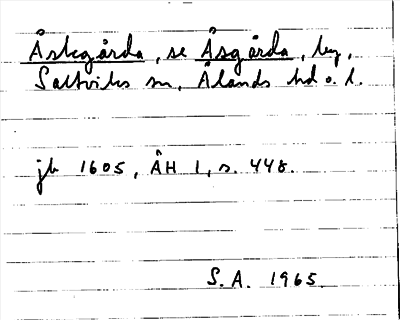 Åskgårda, se Åsgårda, by,
Saltviks sn, Ålands hd o. l.
jb 1605, ÅH 1, s. 448.
S.A. 1965.